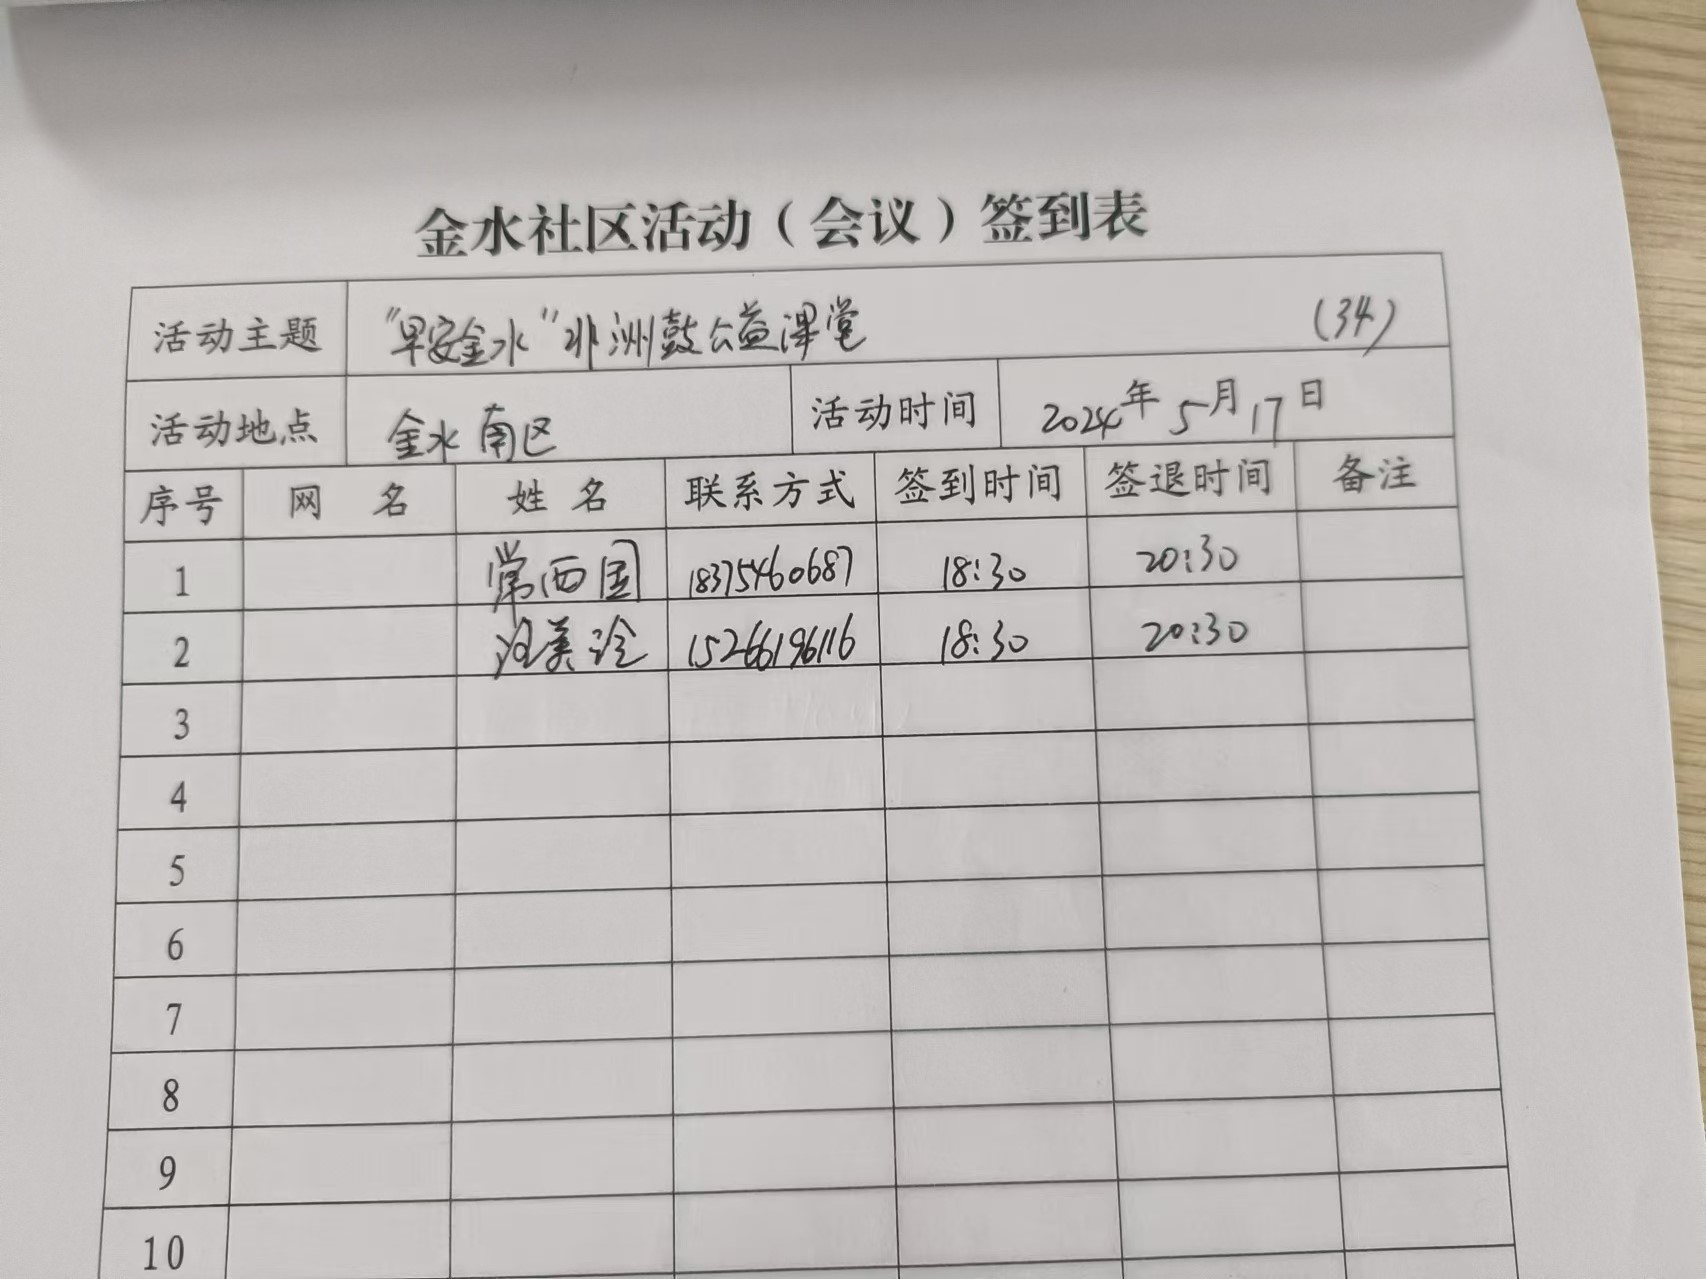 金水社区活动（会议）签到表
活动主题 "早安金水"非洲鼓公益课堂 (34)
活动地点 金水南区 活动时间 2024年5月17日
序号 网 名 姓 名 联系方式 签到时间 签退时间 备注
1 常西国 18375460687 18:30 20:30
2 美玲 15266196116 18:30 20:30
3
4
5
6
7
8
9
10